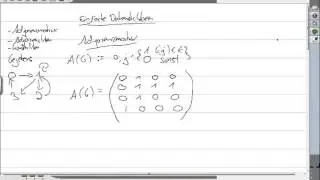 Einfache Datenstrukturen
- Adjazenzmatrix
- Adjazenzliste
- Kantenliste
Adjazenzmatrix
A(G) := a_ij = { 1 (i,j) ∈ E
0 sonst
0 1
3 2
A(G) = ( 0 1 0 0
0 1 1 1
0 1 0 0
1 0 0 0 )